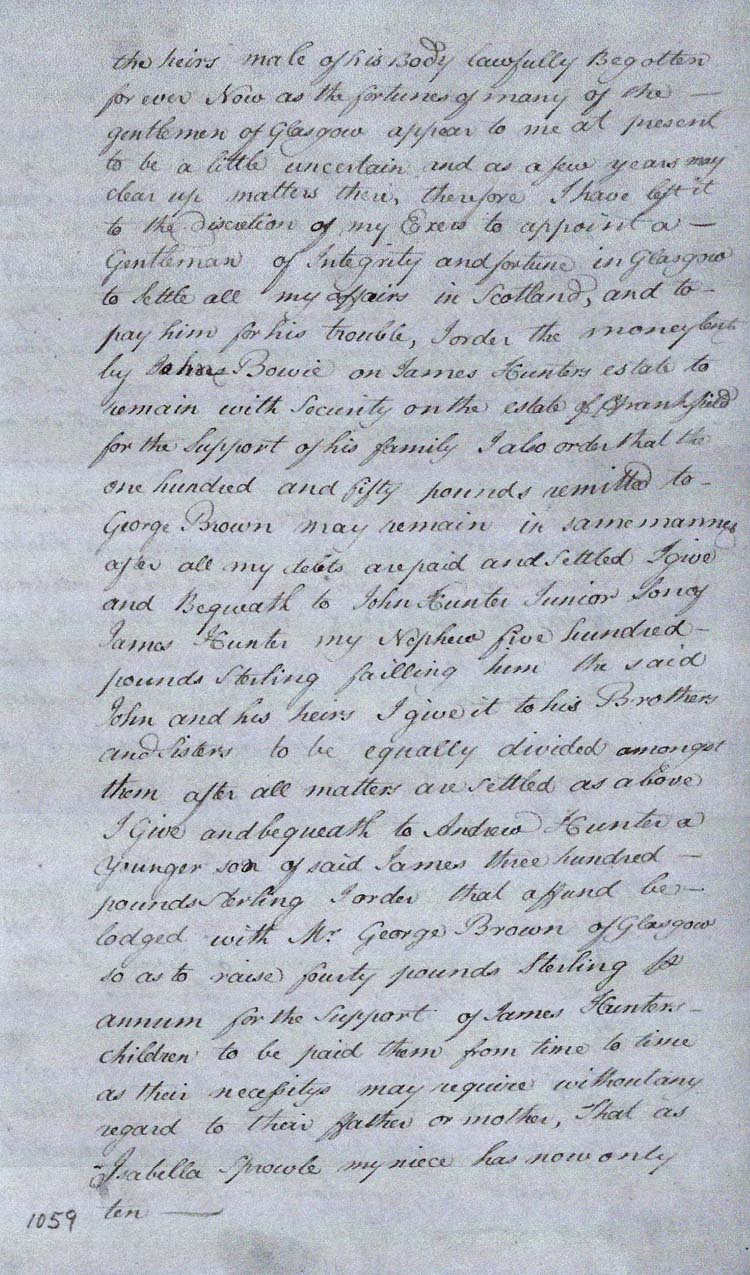 the heirs male of his Body lawfully Begotten
for ever Now as the fortunes of many of the —
gentlemen of Glasgow appear to me at present
to be a little uncertain and as a few years may
clear up matters their, therefore I have left it
to the discretion of my Exers to appoint a —
Gentleman of Integrity and fortune in Glasgow
to Settle all my affairs in Scotland, and to —
pay him for his trouble, I order the money lent
by John Bowie on James Hunters estate to
remain with Security on the estate of ffrankfield
for the Support of his family I also order that the
one hundred and fifty pounds remitted to —
George Brown may remain in same manner
after all my debts are paid and Settled I give
and Beqwath to John Hunter Junior Son of
James Hunter my Nephew five hundred —
pounds Sterling failling him the said
John and his heirs I give it to his Brothers
and Sisters to be equally divided amongst
them after all matters are Settled as above
I Give and bequeath to Andrew Hunter a
younger son of said James three hundred —
pounds Sterling I order that a ffund be —
lodged with Mr. George Brown of Glasgow
so as to raise fourty pounds Sterling pr
annum for the Support of James Hunters —
children to be paid them from time to time
as their necessitys may require without any
regard to their ffather or mother, That as
Isabella Sprowle my niece has now only
ten —
1059